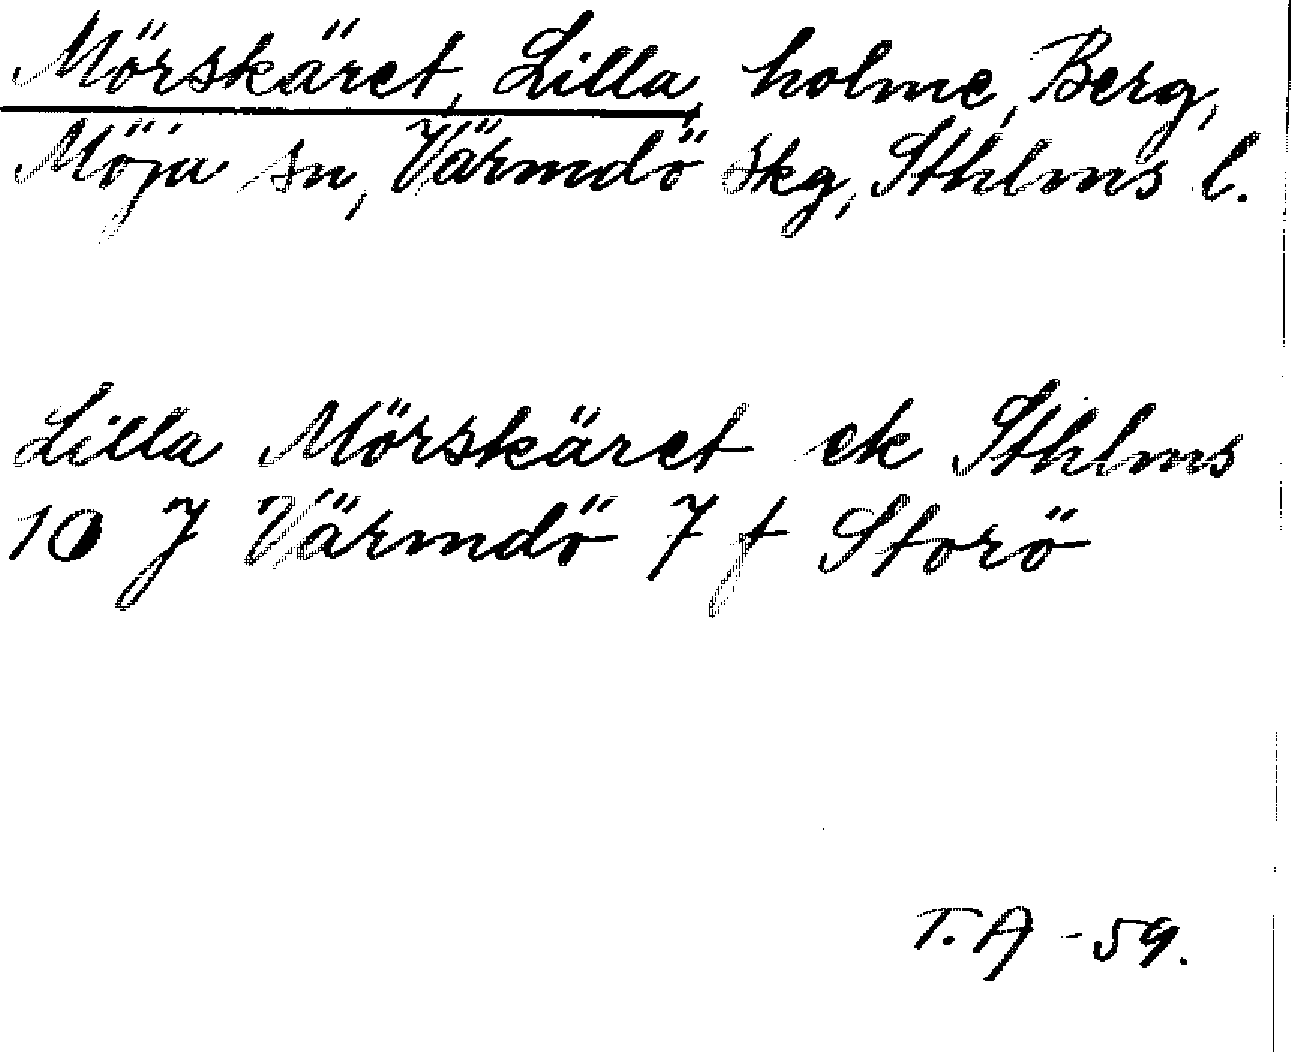 Mörskäret, Lilla, holme, Berg,
Möja sn, Värmdö skg, Sthlms l.
Lilla Mörskäret ek Sthlms
10 J Värmdö 7 f Storö
T. A -59.